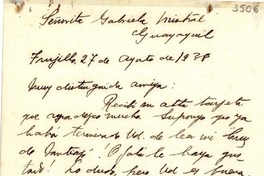 3506
Señorita Gabriela Mistral
Guayaquil
Trujillo 27 de agosto de 1938
Muy distinguida amiga:
Recibí su atta tarjeta
que agradezco mucho. Supongo que ya
habrá terminado Ud. de leer mi
de Santiago! Ojalá le haya gus
tado! Lo dudo, pero Ud. es buena